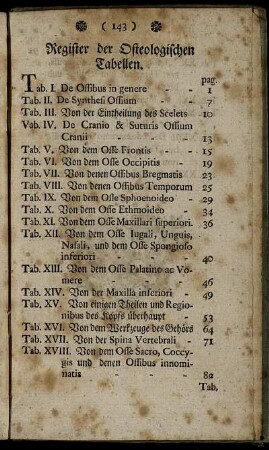 ( 143 )
Register der Osteologischen
Tabellen.
pag.
Tab. I. De Ossibus in genere - - 1
Tab. II. De Synthesi Ossium - - 7
Tab. III. Von der Eintheilung des Scelets 10
Vab. IV. De Cranio & Suturis Ossium
Cranii - - - 13
Tab. V. Von dem Osse Frontis - 15
Tab. VI. Von dem Osse Occipitis - 19
Tab. VII. Von denen Ossibus Bregmatis 23
Tab. VIII. Von denen Ossibus Temporum 25
Tab. IX. Von dem Osse Sphoenoideo - 29
Tab. X. Von dem Osse Ethmoideo - 34
Tab. XI. Von dem Osse Maxillari superiori. 36
Tab. XII. Von dem Osse Iugali, Unguis,
Nasali, und dem Osse Spongioso
inferiori - - - 40
Tab. XIII. Von dem Osse Palatino ac Vo-
mere - - - 46
Tab. XIV. Von der Maxilla inferiori - 49
Tab. XV. Von einigen Theilen und Regio-
nibus des Kopfs überhaupt - 53
Tab. XVI. Von dem Werkzeuge des Gehörs 64
Tab. XVII. Von der Spina Vertebrali - 71
Tab. XVIII. Von dem Osse Sacro, Coccy-
gis und denen Ossibus innomi-
natis - - - 82
Tab.